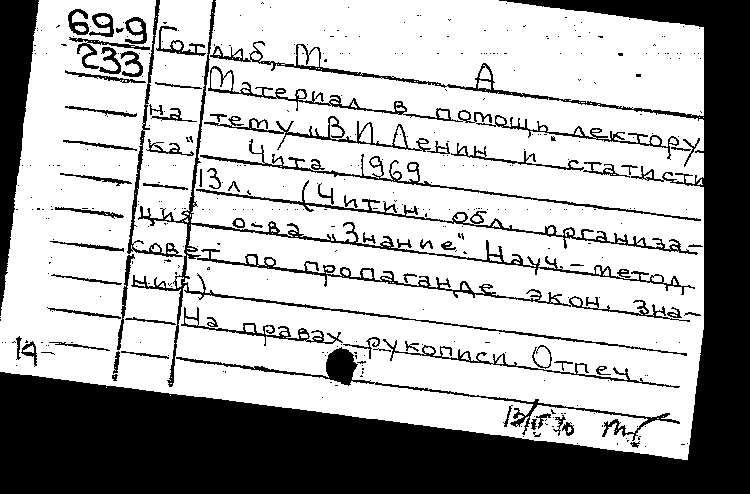 69-9
233
Готлиб, М.
А
Материал в помощь лектору
на тему „В.И. Ленин и статисти
ка". Чита, 1969.
13л. (Читин. обл. организа-
ция о-ва „Знание". Науч.-метод.
совет по пропаганде экон. зна-
ний).
На правах рукописи. Отпеч.
14